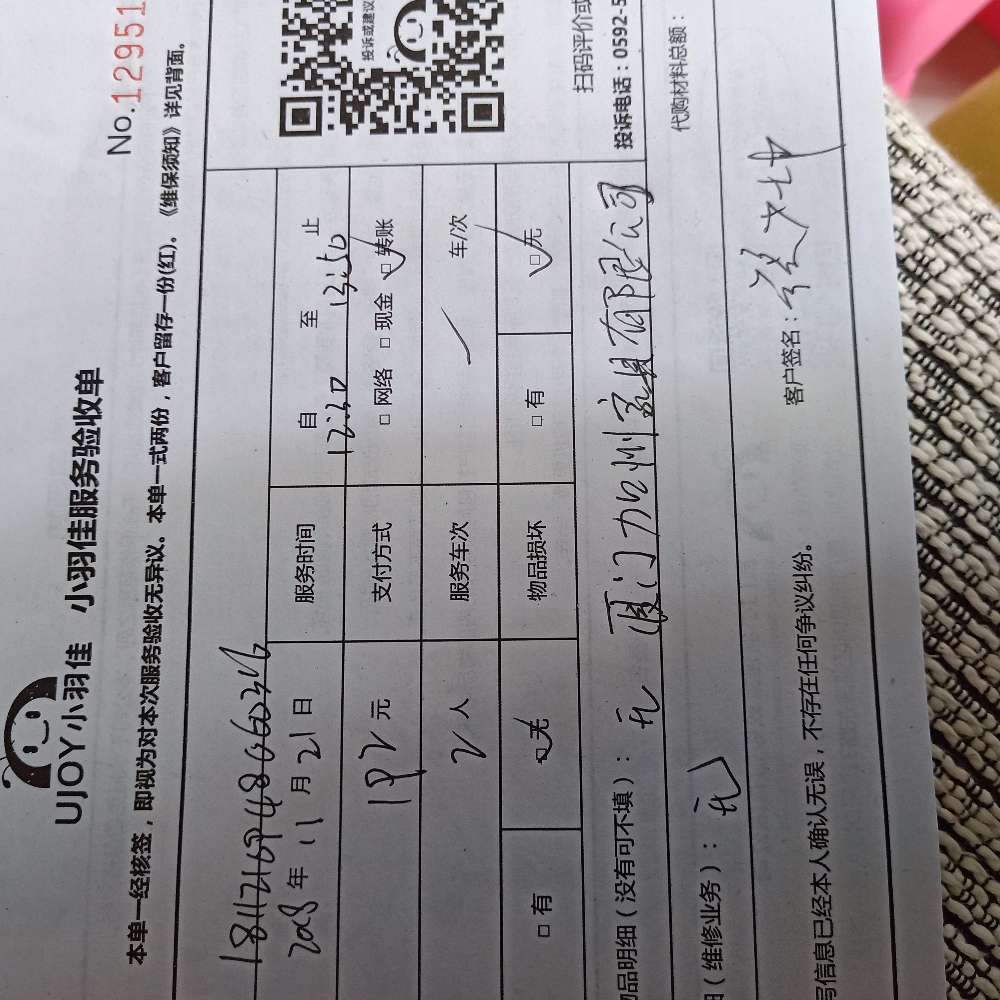 UJOY小羽佳 小羽佳服务验收单
No.12951
本单一经核签，即视为对本次服务验收无异议。本单一式两份，客户留存一份(红)。《维保须知》详见背面。
2018年11月21日 服务时间 自 12:30 至 13:50 止
192元 支付方式 □ 网络 □ 现金 □ 转账
2人 服务车次 / 车/次
□ 有 □ 无 物品损坏 □ 有 □ 无
投诉或建议
扫码评价或
投诉电话：0592-5
物品明细（没有可不填）：无 厦门加州家具有限公司
（维修业务）：无
代购材料总额：
写信息已经本人确认无误，不存在任何争议纠纷。
客户签名：